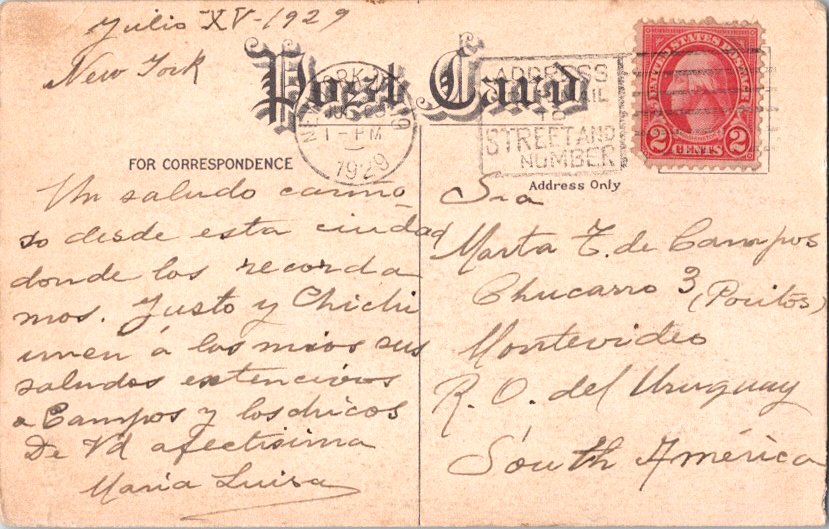 Julio XV-1929
New York
Post Card
NEW YORK, N.Y.
1-PM
1929
ADDRESS
MAIL
TO
STREET AND
NUMBER
UNITED STATES POSTAGE
2 CENTS 2
FOR CORRESPONDENCE
Un saludo cariño-
so desde esta ciudad
donde los recorda
mos. Justo y Chichi
unen á los mios sus
saludos extencivos
a Campos y los chicos
De Vd afectisima
Maria Luisa
Address Only
Sra
Marta T. de Campos
Chucarro 3 (Pocitos)
Montevideo
R. O. del Uruguay
South América